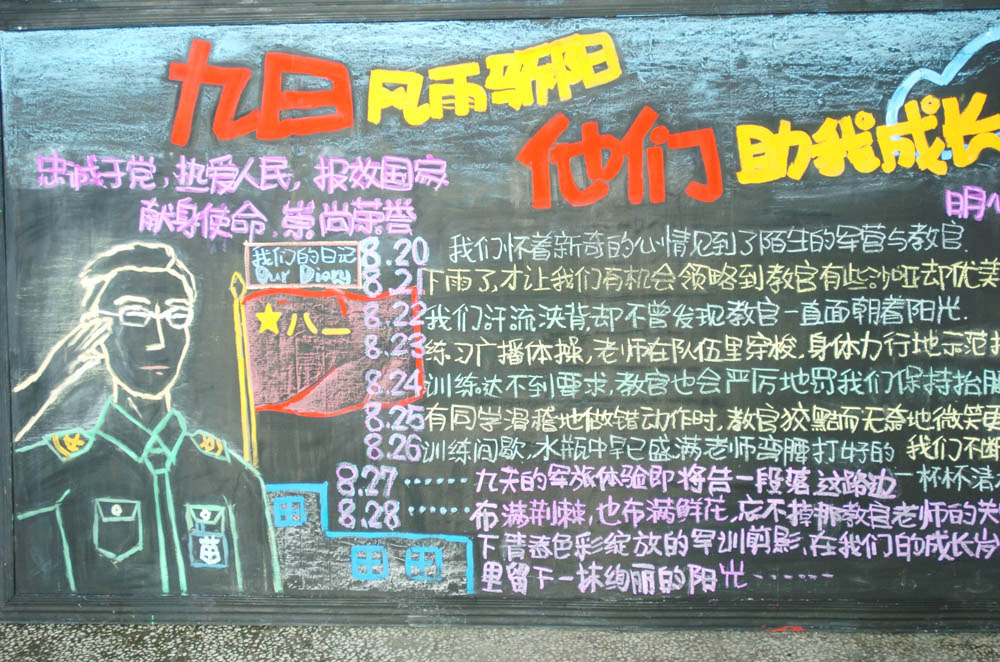 九日风雨骄阳
他们助我成长
忠诚于党,热爱人民,报效国家
献身使命,崇尚荣誉
明
我们的日记
Our Diary
八一
8.20 我们怀着新奇的心情见到了陌生的军营与教官.
8.21 下雨了,才让我们有机会领略到教官有些沙哑却优美
8.22 我们汗流浃背却不曾发现教官一直面朝着阳光.
8.23 练习广播体操,老师在队伍里穿梭,身体力行地示范
8.24 训练达不到要求,教官也会严厉地罚我们保持抬腿
8.25 有同学滑稽地做错动作时,教官狡黠而无奈地微笑更
8.26 训练间歇,水瓶中早已盛满老师弯腰打好的 我们不断
一杯杯清
8.27 ······ 九天的军旅体验即将告一段落 这路边
8.28 ······ 布满荆棘,也布满鲜花,忘不掉那教官老师的关
下青春色彩绽放的军训剪影,在我们的成长岁
里留下一抹绚丽的阳光······